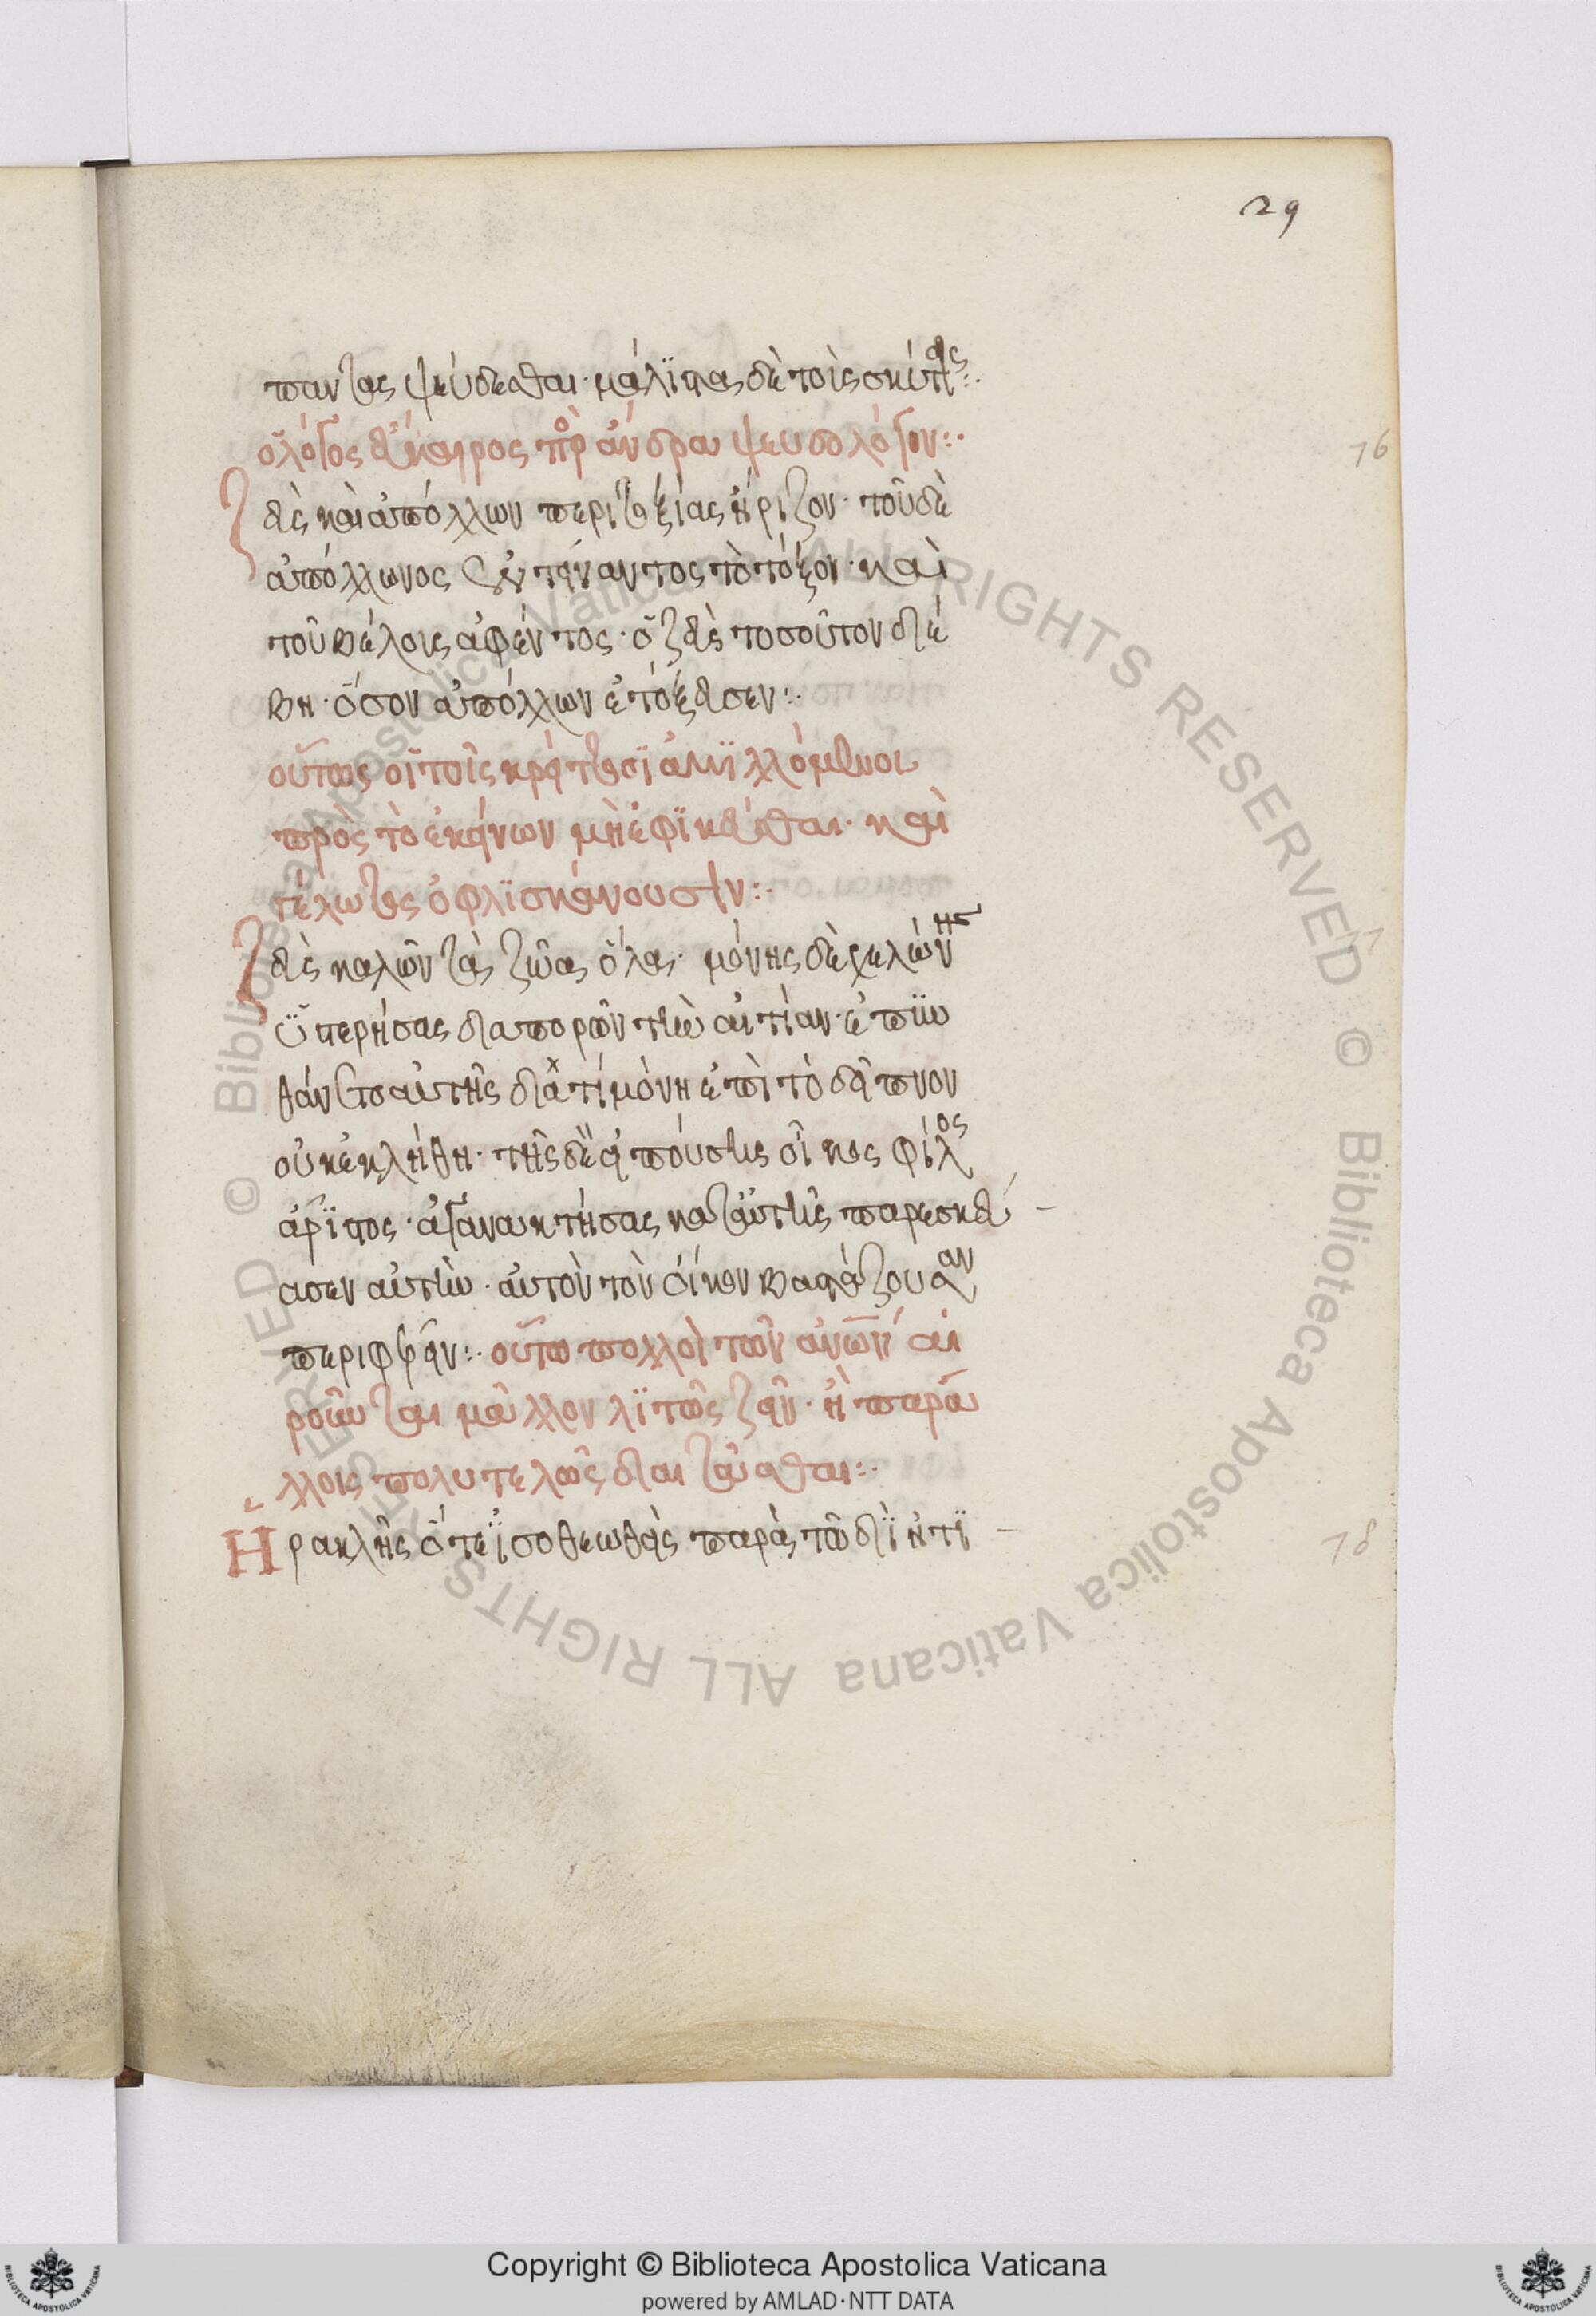 29
πάντας ψεύδεσθαι· μάλϊστα δὲ τοὺς σκυτεῖς:·
ὁ λόγος εὔκαιρος πρὸς ἄνδρα ψευδολόγον:·
16
Ζεὺς καὶ ἀπόλλων περὶ τοξείας ἤριζον· τοῦ δὲ
ἀπόλλωνος ἐντείναντος τὸ τόξον· καὶ
τοῦ βέλους ἀφέντος· ὁ ζεὺς τοσοῦτον διέ
βη· ὅσον ἀπόλλων ἐτόξευσεν:·
οὕτως οἱ τοῖς κράττοσϊ ἁμϊλλόμενοι
πρὸς τὸ ἐκείνων μὴ ἐφϊκέσθαι· καὶ
γέλωτας ὀφλϊσκάνουσιν:·
17
Ζεὺς καλῶν τὰ ζῶα ὅλα· μόνης δὲ χελώνης
ὑστερησάσης διαπορῶν τὴν αἰτίαν· ἐπϋν
θάνετο αὐτῆς διατί μόνη ἐπὶ τὸ δεῖπνον
οὐκ ἐκλήθη· τῆς δὲ εἰπούσης οἶκος φίλος
ἄρϊστος· ἀγανακτήσας κατ' αὐτῆς παρεσκεύ
ασεν αὐτὴν· αὐτὸν τὸν οἶκον βαστάζουσαν
περιφέρειν:· οὕτω πολλοὶ τῶν ἀνων αἱ
ροῦνται μᾶλλον λϊτῶς ζῆν· ἢ παρ' ἄ
λλοις πολυτελῶς διαιτᾶσθαι:·
Ἡρακλῆς ὅτε ἰσοθεωθεὶς παρὰ τῶ διῒ ἡστϊ
18
Copyright © Biblioteca Apostolica Vaticana
powered by AMLAD·NTT DATA